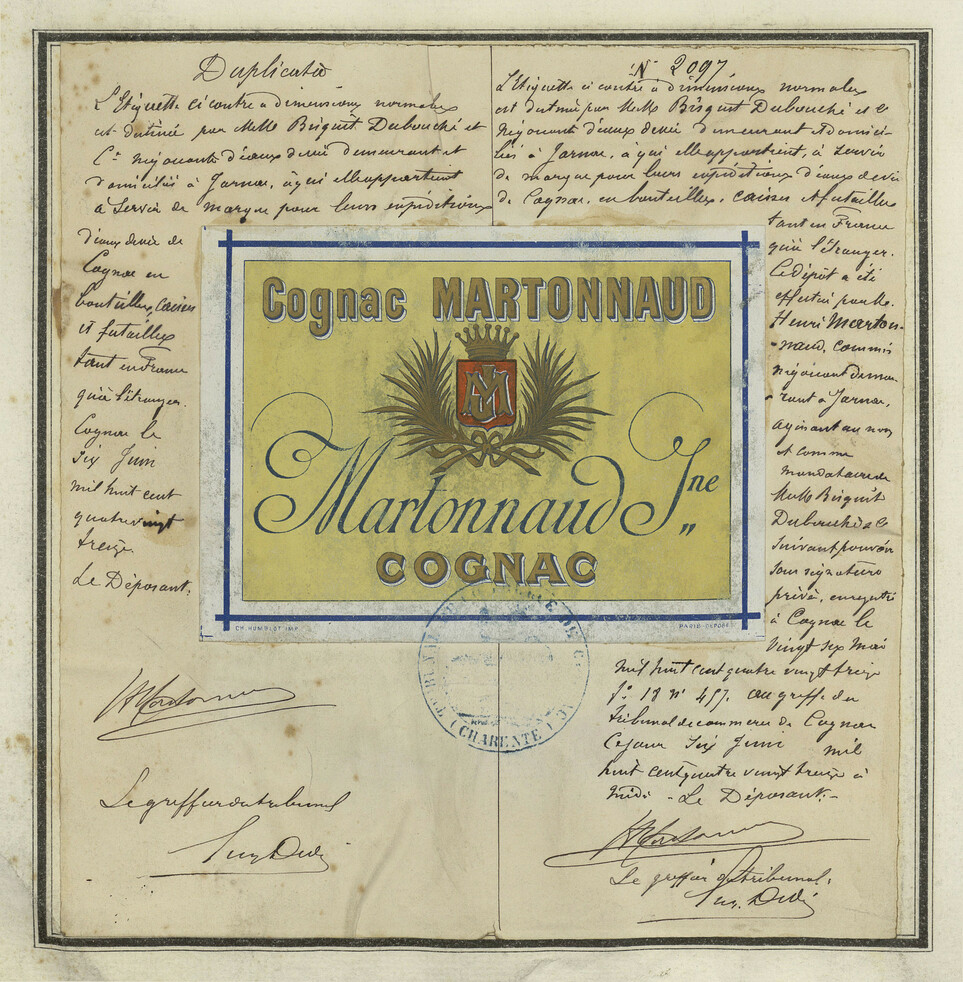 Duplicata
L'Etiquette ci contre a dimensions normales
est destinée par MM Bisquit Dubouché et
Cie négociants d'eaux de vie demeurant et
domiciliés à Jarnac, à qui elle appartient
à servir de marque pour leurs expéditions
d'eaux de vie de
Cognac en
bouteilles, caisses
et futailles
tant en France
qu'à l'étranger.
Cognac le
six Juin
mil huit cent
quatre vingt
treize.
Le Déposant:
Le greffier du tribunal
N° 2097
L'Etiquette ci contre à dimensions normales
est destinée par MM Bisquit Dubouché et C
négociants d'eaux de vie demeurant et domici-
liés à Jarnac, à qui elle appartient, à servir
de marque pour leurs expéditions d'eaux de vie
de Cognac, en bouteilles, caisses et futailles
tant en France
qu'à l'Etranger.
Ce dépôt a été
effectué par M.
Henri Marton-
-naud, commis
négociant demeu
rant à Jarnac,
agissant au nom
et comme
mandataire de
MM Bisquit
Dubouché & C
suivant pouvoir
sous signatures
privé, enregistré
à Cognac le
vingt six Mai
mil huit cent quatre vingt treize
f° 18 n° 457. au greffe du
tribunal de commerce de Cognac
Ce jour six Juin mil
huit cent quatre vingt treize à
midi - Le Déposant:-
Le greffier du tribunal:
Cognac MARTONNAUD
MJ
Martonnaud Jne
COGNAC
CH. HUMBLOT IMP.
PARIS-DEPOSÉ
(CHARENTE)